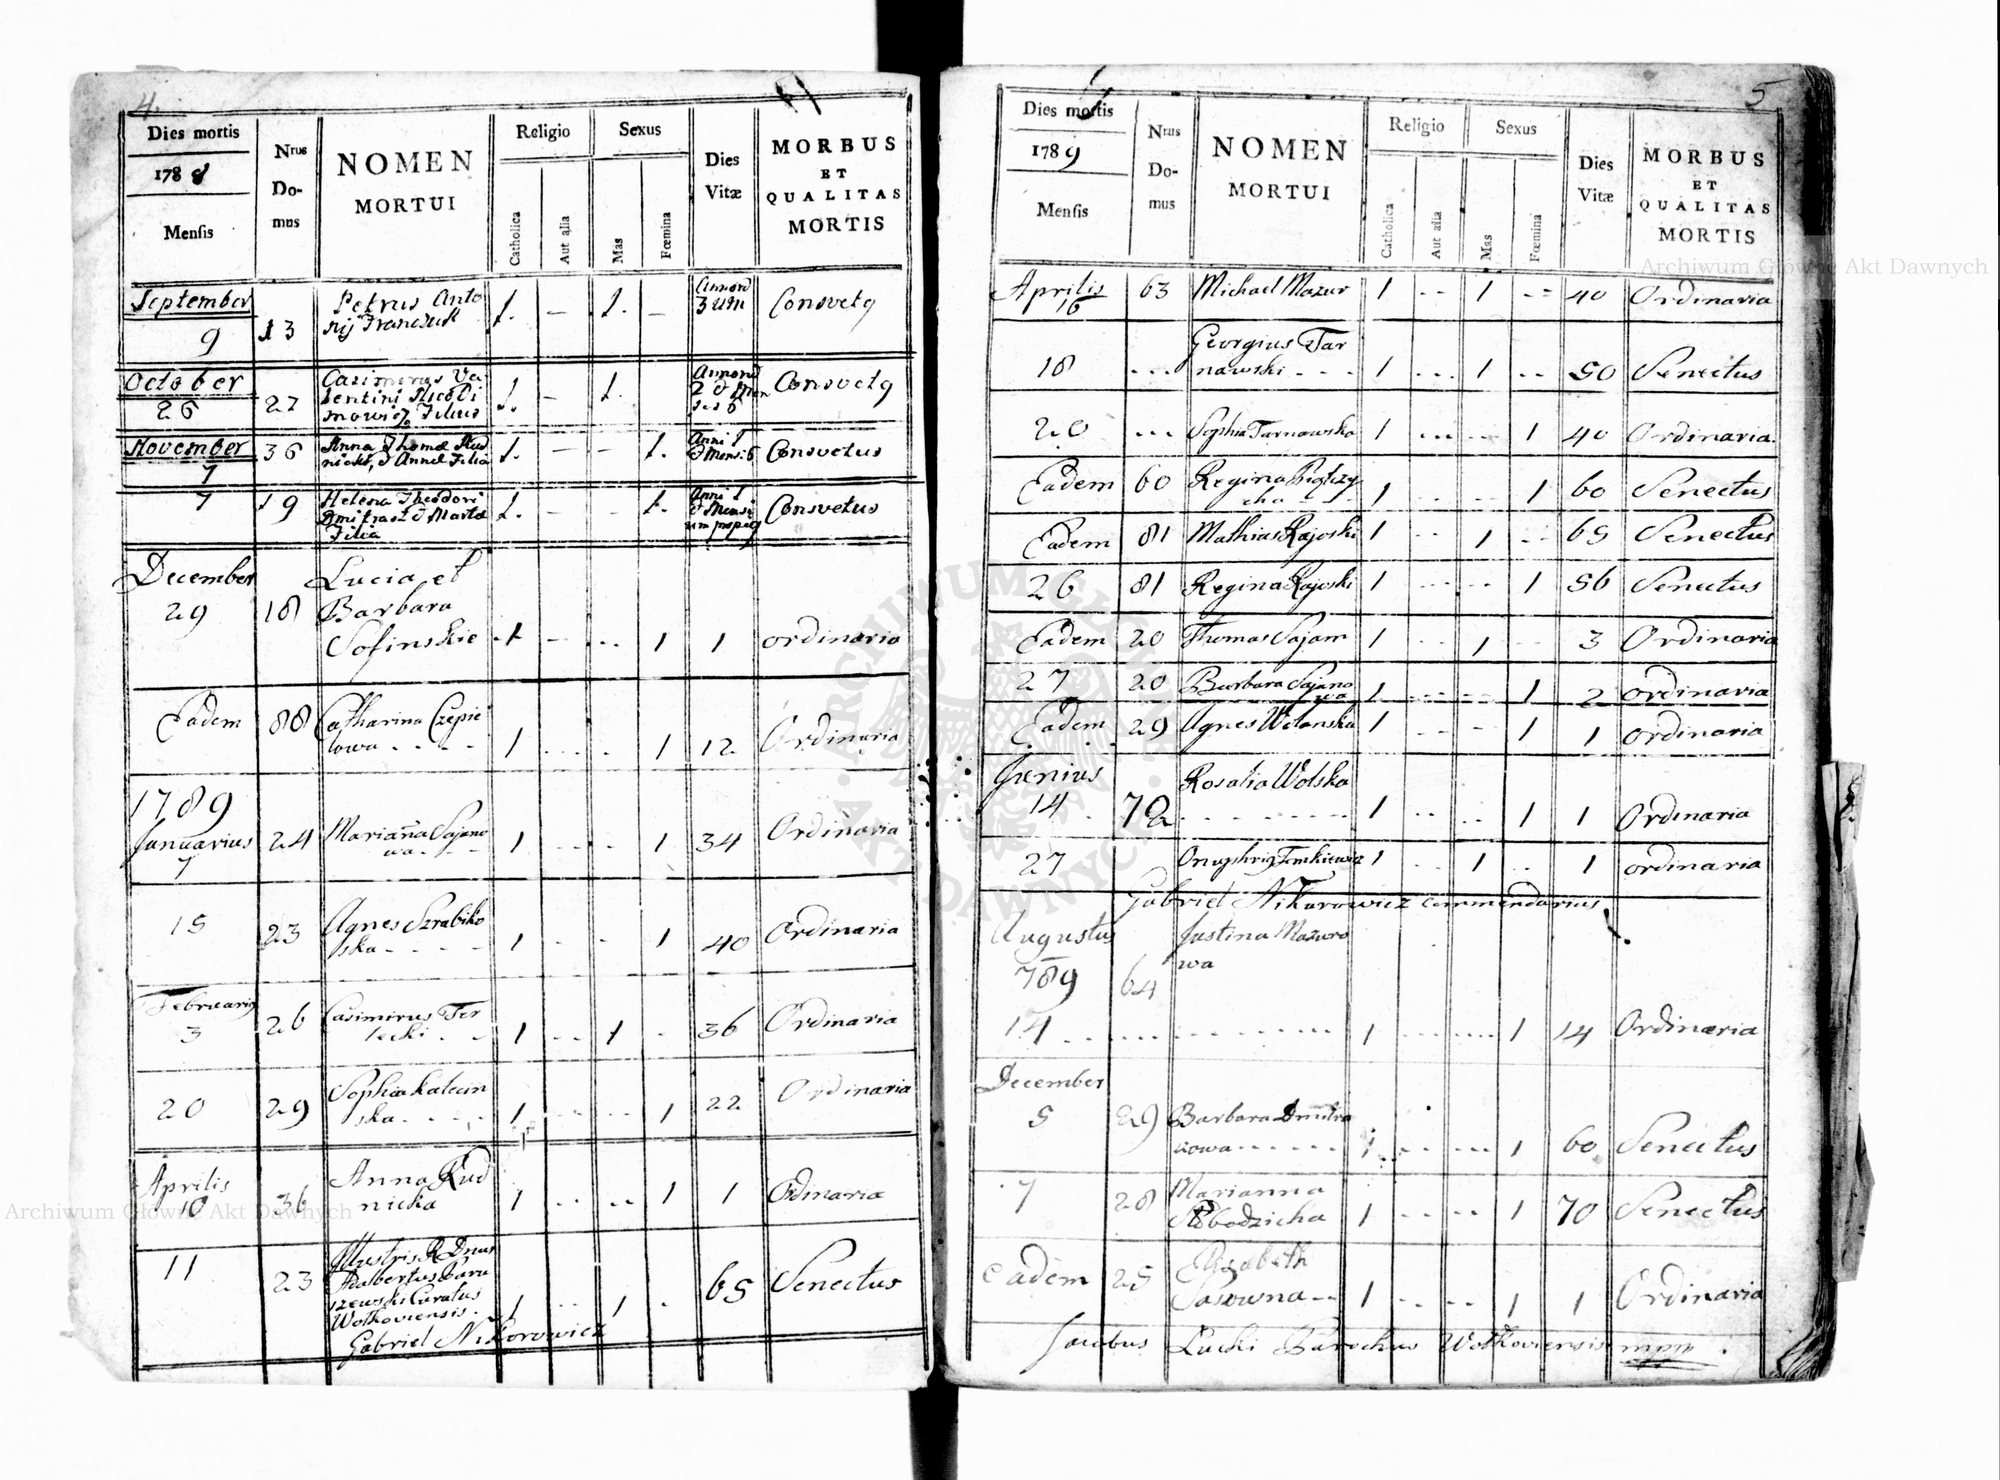 4.
Dies mortis
1788
Mensis
Nrus
Do-
mus
NOMEN
MORTUI
Religio
Catholica
Aut alia
Sexus
Mas
Fœmina
Dies
Vitæ
MORBUS
ET
QUALITAS
MORTIS
September
9
13
Petrus Anto
nij Franczuk
1. — 1. —
Annorũ
3 um
Consvetq
October
26
27
Casimirus Va
lentini
Filius
1. — 1.
Annorũ
2 & Men
ses 6
Consvetq
November
7
36
Anna Thomæ Rud
nicki, & Annæ Filia
1. — — 1.
Anni 1
& Mensi 6
Consvetus
7
19
Helena Theodori
Dmitrasz & Martæ
Filia
1. — — 1.
Anni 1
& Mensi
Consvetus
December
29
18
Lucia et
Barbara
Sofinskie
1 1 1
ordinaria
Eadem
88
Catharina Czepie
lowa
1 1 12
Ordinaria
1789
Januarius
7
24
Marianna Sajano
wa
1 1 34
Ordinaria
15
23
Agnes Szrabiko
ska
1 1 40
Ordinaria
Februarius
3
26
Casimirus Ter
lecki
1 1 36
Ordinaria
20
29
Sophia Kalecin
ska
1 1 22
Ordinaria
Aprilis
10
36
Anna Rud
nicka
1 1 1
Ordinaria
11
23
Illustris R Dnus
Adalbertus Paru
szewski Curatus
Wolkoviensis.
1 1 65
Senectus
Gabriel Nikorowicz
5
Dies mortis
1789
Mensis
Nrus
Do-
mus
NOMEN
MORTUI
Religio
Catholica
Aut alia
Sexus
Mas
Fœmina
Dies
Vitæ
MORBUS
ET
QUALITAS
MORTIS
Aprilis
16
63
Michael Mazur
1 1 40
Ordinaria
18
Georgius Tar
nawski
1 1 50
Senectus
20
Sophia Tarnawska
1 1 40
Ordinaria.
Eadem
60
Regina
cha
1 1 60
Senectus
Eadem
81
Mathias Rajoski
1 1 65
Senectus
26
81
Regina Rajoski
1 1 56
Senectus
Eadem
20
Thomas Sajan
1 1 3
Ordinaria
27
20
Barbara Sajano
wa
1 1 2
ordinaria
Eadem
29
Agnes Wolanska
1 1 1
ordinaria
Junius
14
72
Rosalia Wolska
1 1 1
Ordinaria
27
Onuphrig Tomkiewicz
1 1 1
ordinaria
Gabriel Nikorowicz commendarius
Augustus
789
14
64
Justina Mazuro
wa
1 1 14
Ordinaria
December
5
29
Barbara Dmitra
szowa
1 1 60
Senectus
7
28
Marianna
Slobodzicha
1 1 70
Senectus
eadem
25
Elisabeth
Sasowna
1 1 1
Ordinaria
Jacobus Lucki Parochus Wolkoviensis mpm.
Archiwum Główne Akt Dawnych
Archiwum Główne Akt Dawnych
ARCHIWUM GŁÓWNE AKT DAWNYCH